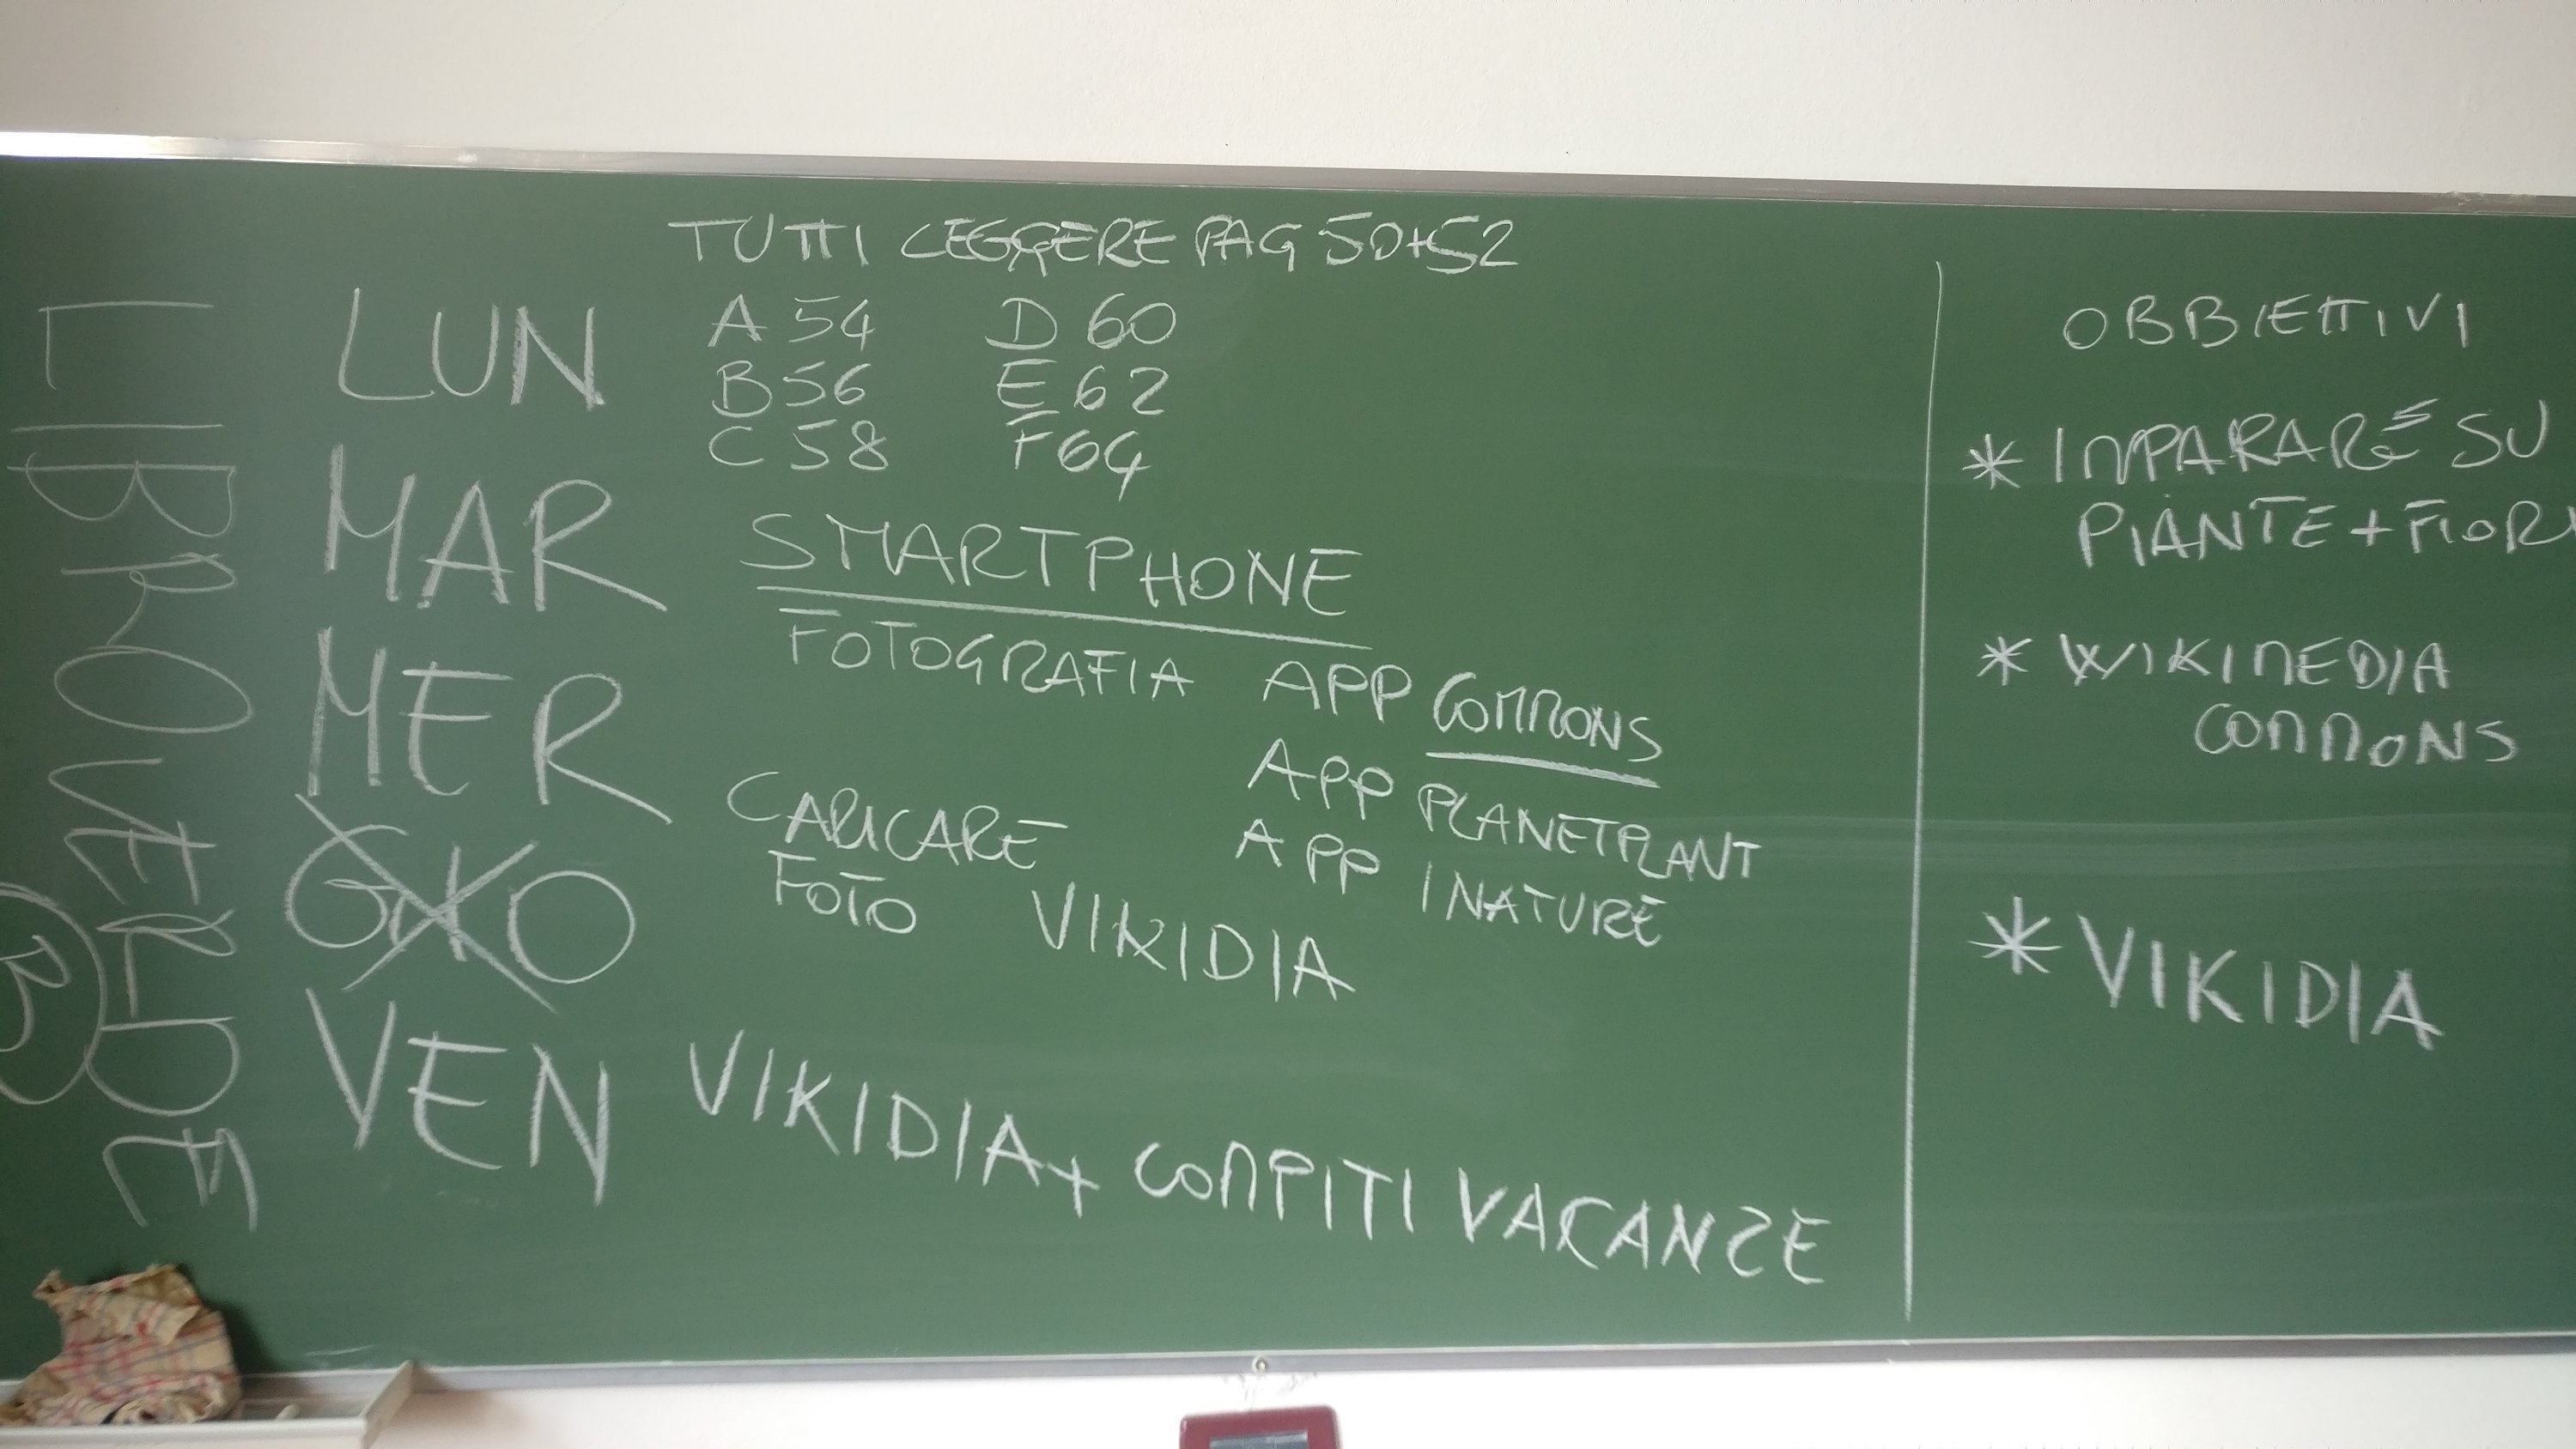 TUTTI LEGGERE PAG 50+52
LIBRO VERDE
B
LUN
A 54 D 60
B 56 E 62
C 58 F 64
MAR
SMARTPHONE
FOTOGRAFIA APP COMMONS
APP PLANETPLANT
APP INATURE
MER
CARICARE
FOTO
VIKIDIA
GIO
VEN
VIKIDIA + COMPITI VACANZE
OBBIETTIVI
* IMPARARE SU
PIANTE + FIORI
* WIKIMEDIA
COMMONS
* VIKIDIA